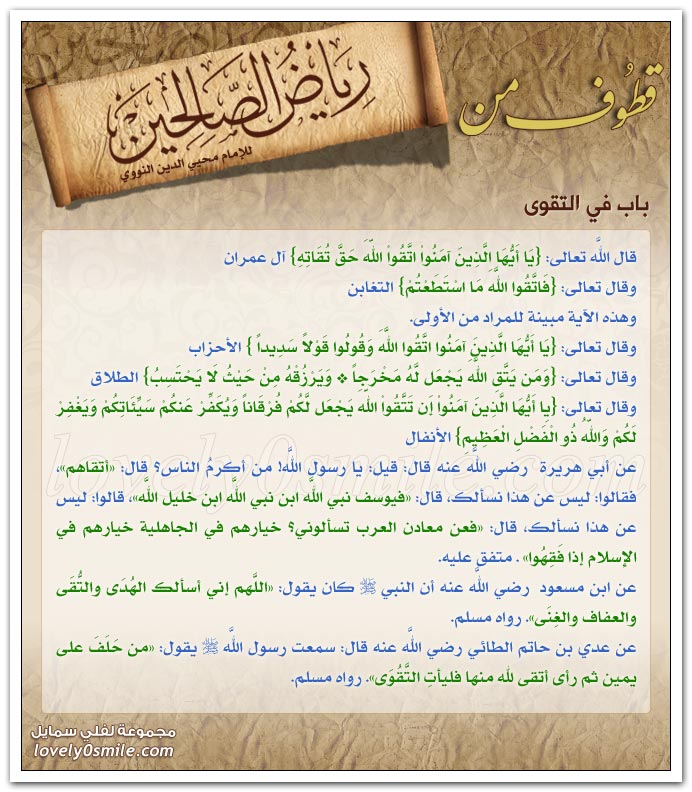 قطوف من
رياض الصالحين
للإمام محيي الدين النووي
باب في التقوى
قال اللَّه تعالى: {يَا أَيُّهَا الَّذِينَ آمَنُواْ اتَّقُواْ اللَّهَ حَقَّ تُقَاتِهِ} آل عمران
وقال تعالى: {فَاتَّقُوا اللَّهَ مَا اسْتَطَعْتُمْ} التغابن
وهذه الآية مبينة للمراد من الأولى.
وقال تعالى: {يَا أَيُّهَا الَّذِينَ آمَنُوا اتَّقُوا اللَّهَ وَقُولُوا قَوْلاً سَدِيداً } الأحزاب
وقال تعالى: {وَمَن يَتَّقِ اللَّهَ يَجْعَل لَّهُ مَخْرَجاً * وَيَرْزُقْهُ مِنْ حَيْثُ لَا يَحْتَسِبُ} الطلاق
وقال تعالى: {يا أَيُّهَا الَّذِينَ آمَنُواْ إِن تَتَّقُواْ اللّهَ يَجْعَل لَّكُمْ فُرْقَاناً وَيُكَفِّرْ عَنكُمْ سَيِّئَاتِكُمْ وَيَغْفِرْ
لَكُمْ وَاللّهُ ذُو الْفَضْلِ الْعَظِيمِ} الأنفال
عن أبي هريرة رضي اللَّه عنه قال: قيل: يا رسول اللَّه! من أكرمُ الناس؟ قال: «أتقاهم»،
فقالوا: ليس عن هذا نسألك، قال: «فيوسف نبي اللَّه ابن نبي اللَّه ابن خليل اللَّه»، قالوا: ليس
عن هذا نسألك، قال: «فعن معادن العرب تسألوني؟ خيارهم في الجاهلية خيارهم في
الإسلام إذا فَقِهُوا» . متفق عليه.
عن ابن مسعود رضي اللَّه عنه أن النبي ﷺ كان يقول: «اللَّهم إني أسألك الهُدَى والتُّقَى
والعفاف والغِنَى». رواه مسلم.
عن عدي بن حاتم الطائي رضي اللَّه عنه قال: سمعت رسول اللَّه ﷺ يقول: «من حَلَفَ على
يمين ثم رأى أتقى لله منها فليأتِ التَّقْوَى». رواه مسلم.
lovely0smile.com
مجموعة لفلي سمايل
lovely0smile.com